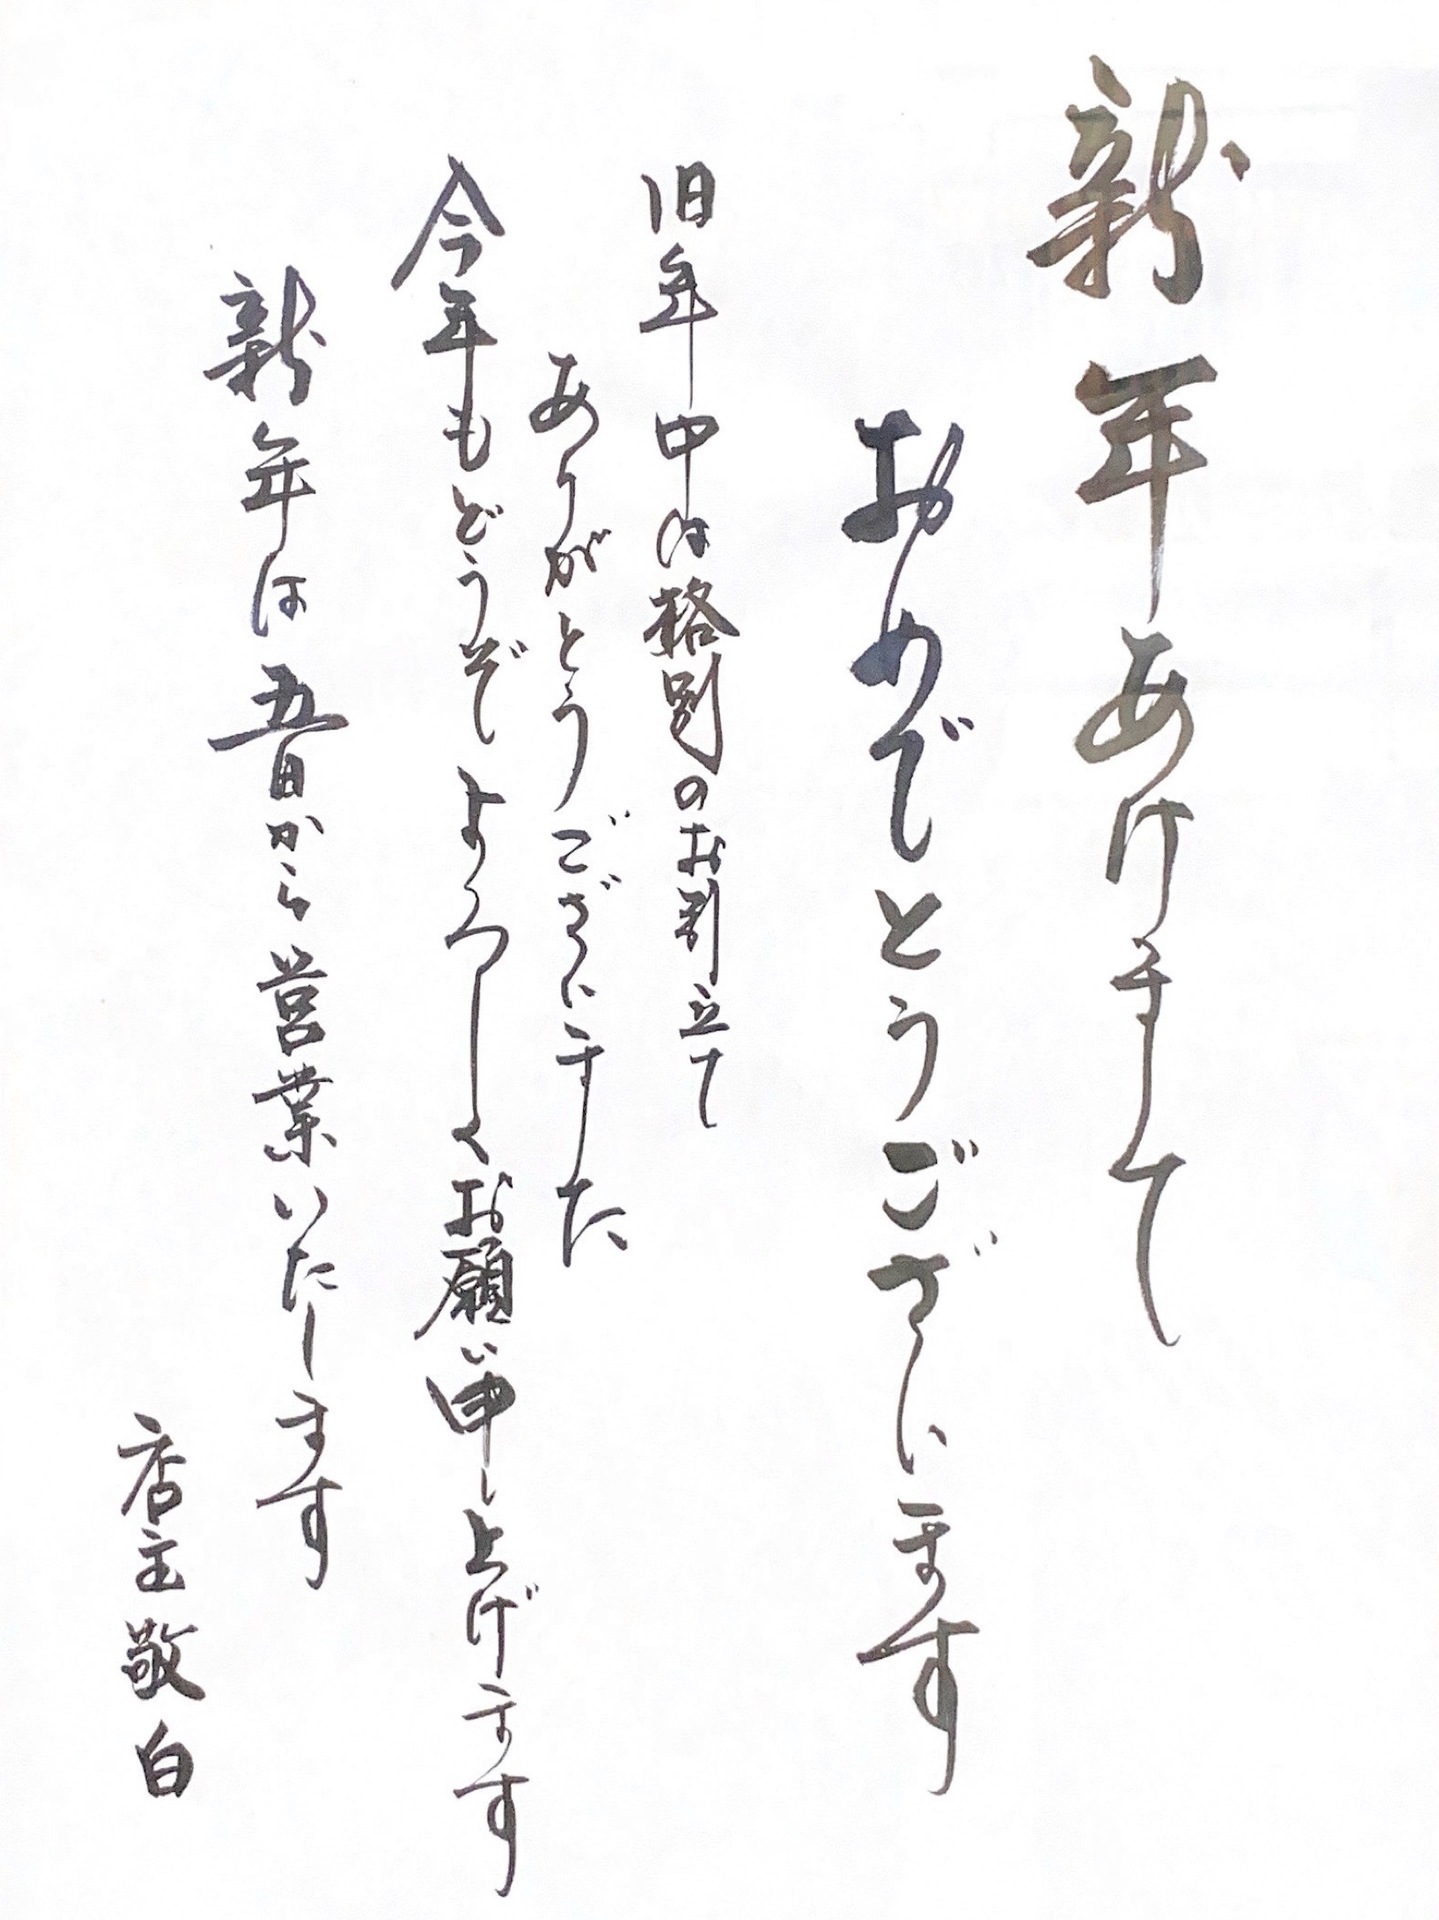 新年あけまして
おめでとうございます
旧年中は格別のお引立て
ありがとうございました
今年もどうぞよろしくお願い申し上げます
新年は五日から営業いたします
店主敬白